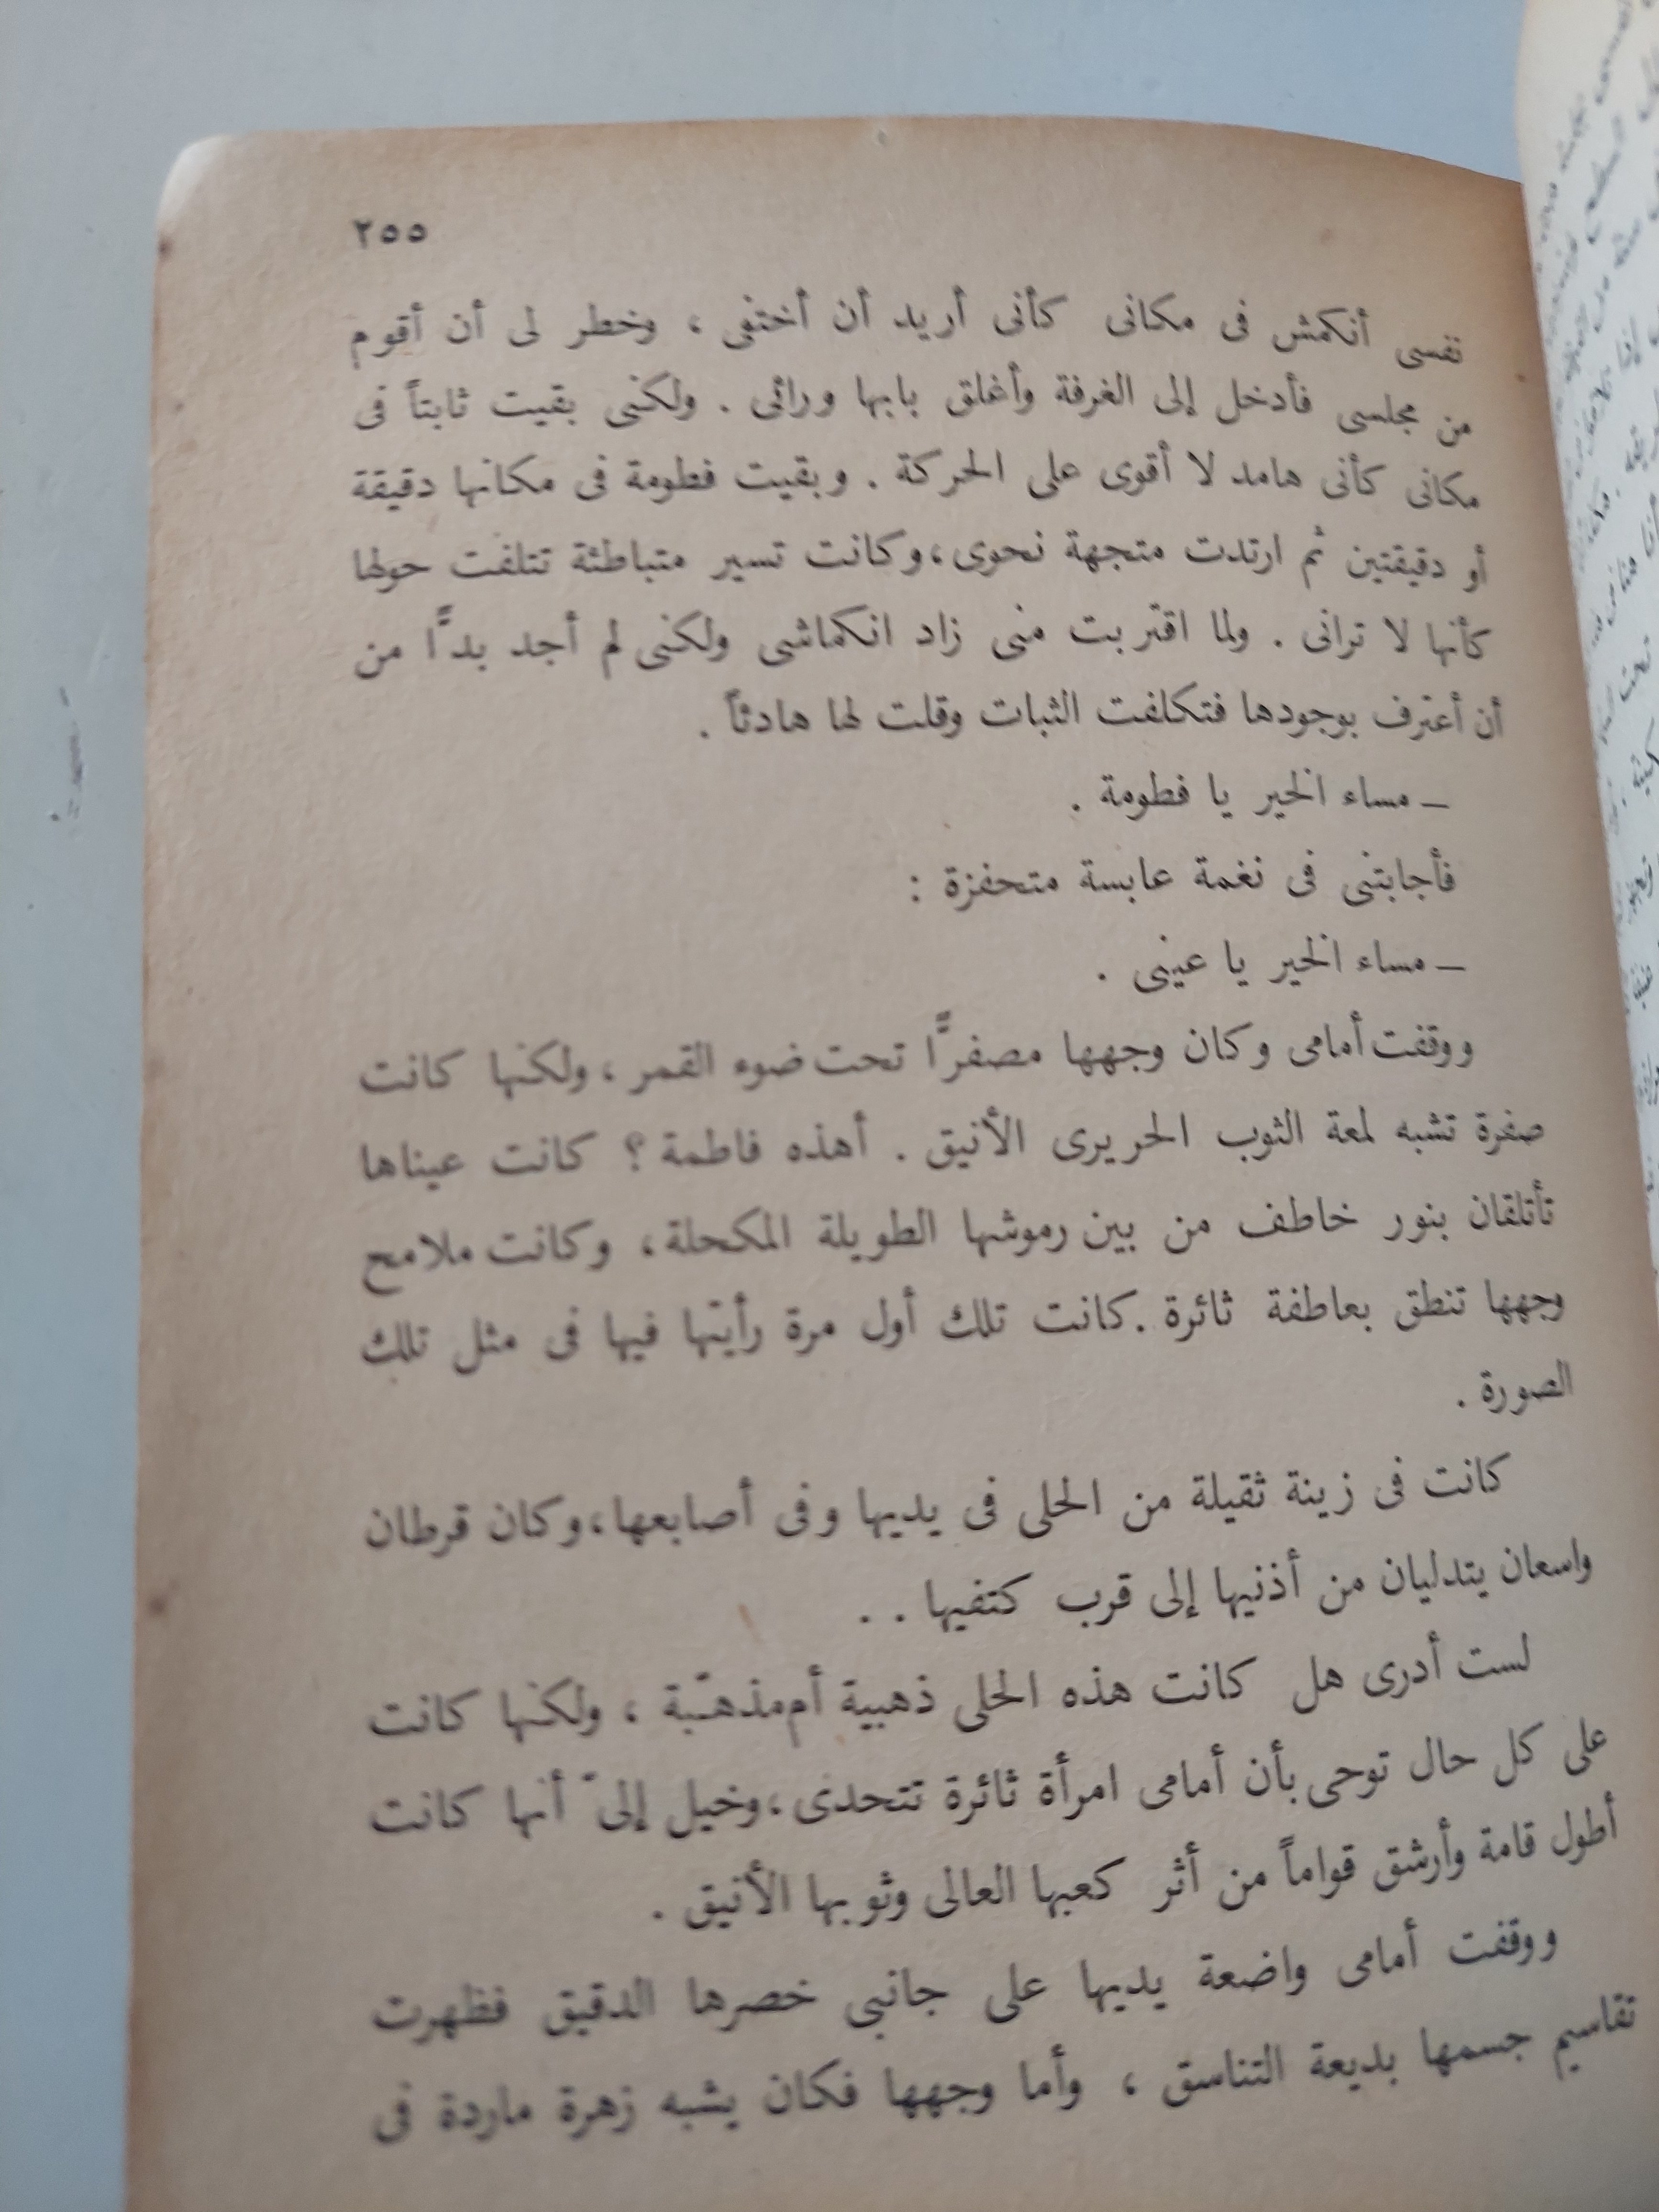 ٢٥٥
نفسى أنكمش فى مكانى كأنى أريد أن أختفى ، وخطر لى أن أقوم
من مجلسى فأدخل إلى الغرفة وأغلق بابها ورائى . ولكنى بقيت ثابتاً فى
مكانى كأنى هامد لا أقوى على الحركة . وبقيت فطومة فى مكانها دقيقة
أو دقيقتين ثم ارتدت متجهة نحوى ، وكانت تسير متباطئة تتلفت حولها
كأنها لا ترانى . ولما اقتربت منى زاد انكماشى ولكنى لم أجد بدًّا من
أن أعترف بوجودها فتكلفت الثبات وقلت لها هادئاً .
– مساء الخير يا فطومة .
فأجابتنى فى نغمة عابسة متحفزة :
– مساء الخير يا عينى .
ووقفت أمامى وكان وجهها مصفرًّا تحت ضوء القمر ، ولكنها كانت
صفرة تشبه لمعة الثوب الحريرى الأنيق . أهذه فاطمة ؟ كانت عيناها
تأتلقان بنور خاطف من بين رموشها الطويلة المكحلة ، وكانت ملامح
وجهها تنطق بعاطفة ثائرة . كانت تلك أول مرة رأيتها فيها فى مثل تلك
الصورة .
كانت فى زينة ثقيلة من الحلى فى يديها وفى أصابعها ، وكان قرطان
واسعان يتدليان من أذنيها إلى قرب كتفيها . .
لست أدرى هل كانت هذه الحلى ذهبية أم مذهّبة ، ولكنها كانت
على كل حال توحى بأن أمامى امرأة ثائرة تتحدى ، وخيل إلىّ أنها كانت
أطول قامة وأرشق قواماً من أثر كعبها العالى وثوبها الأنيق .
ووقفت أمامى واضعة يديها على جانبى خصرها الدقيق فظهرت
تقاسيم جسمها بديعة التناسق ، وأما وجهها فكان يشبه زهرة ماردة فى